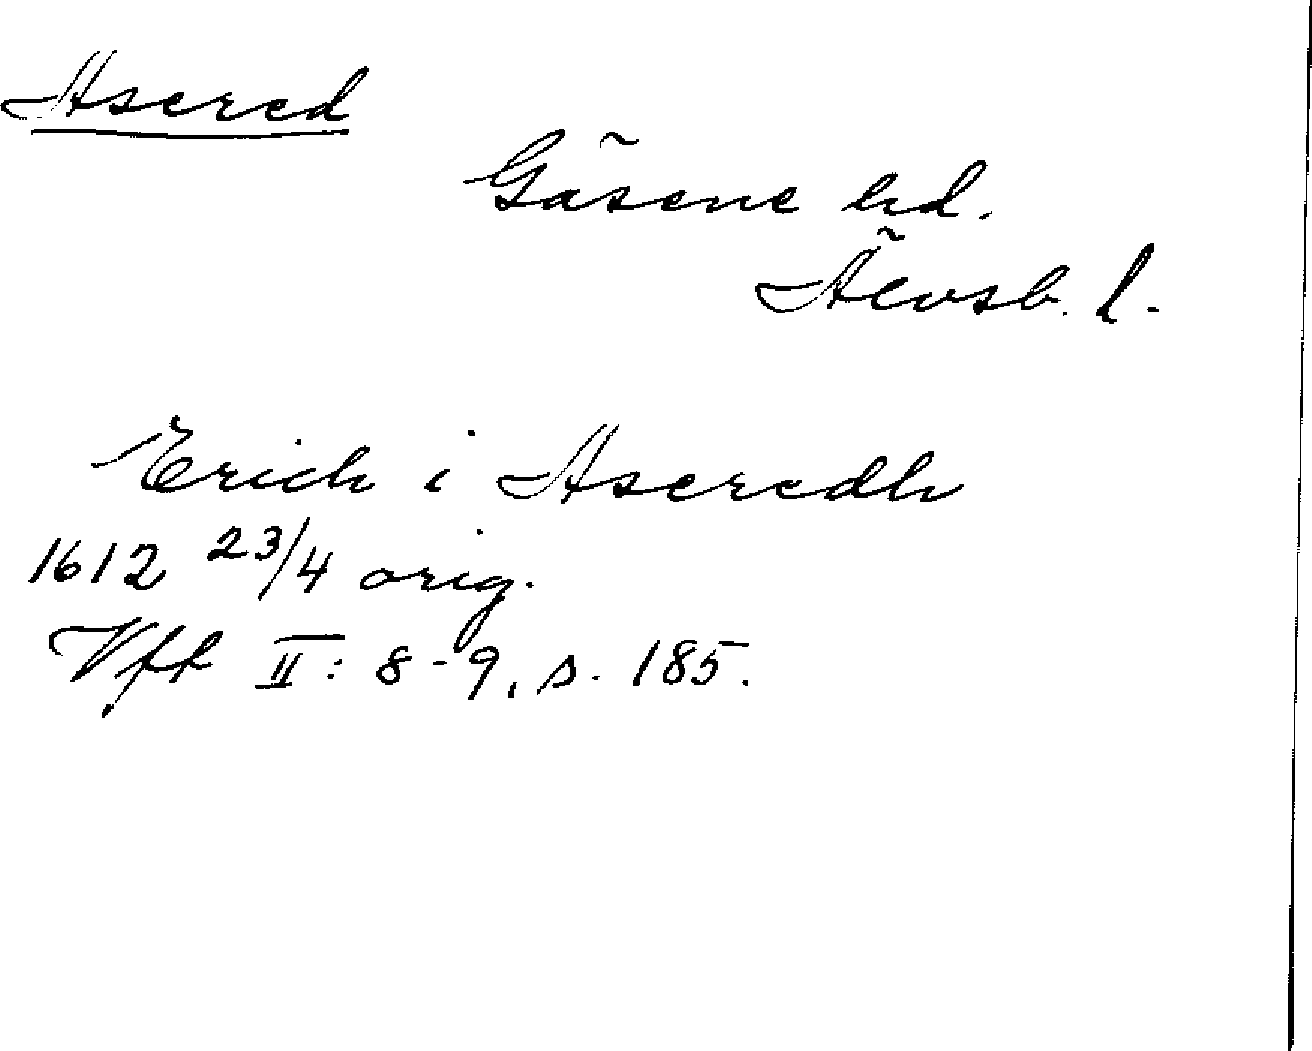 Asered
Gäsene hd.
Älvsb. l.
Erich i Aseredh
1612 23/4 orig.
Vff II: 8-9, s. 185.